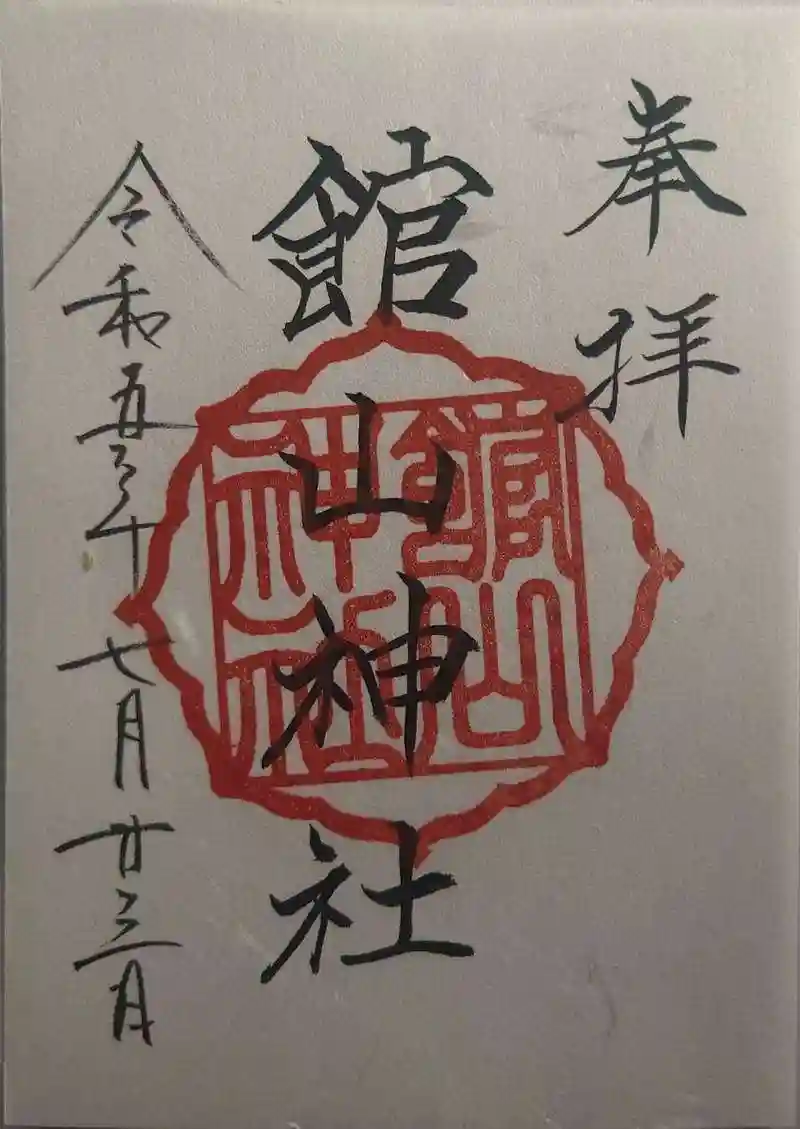 奉拝
館山神社
館山神社
令和五年七月廿三日